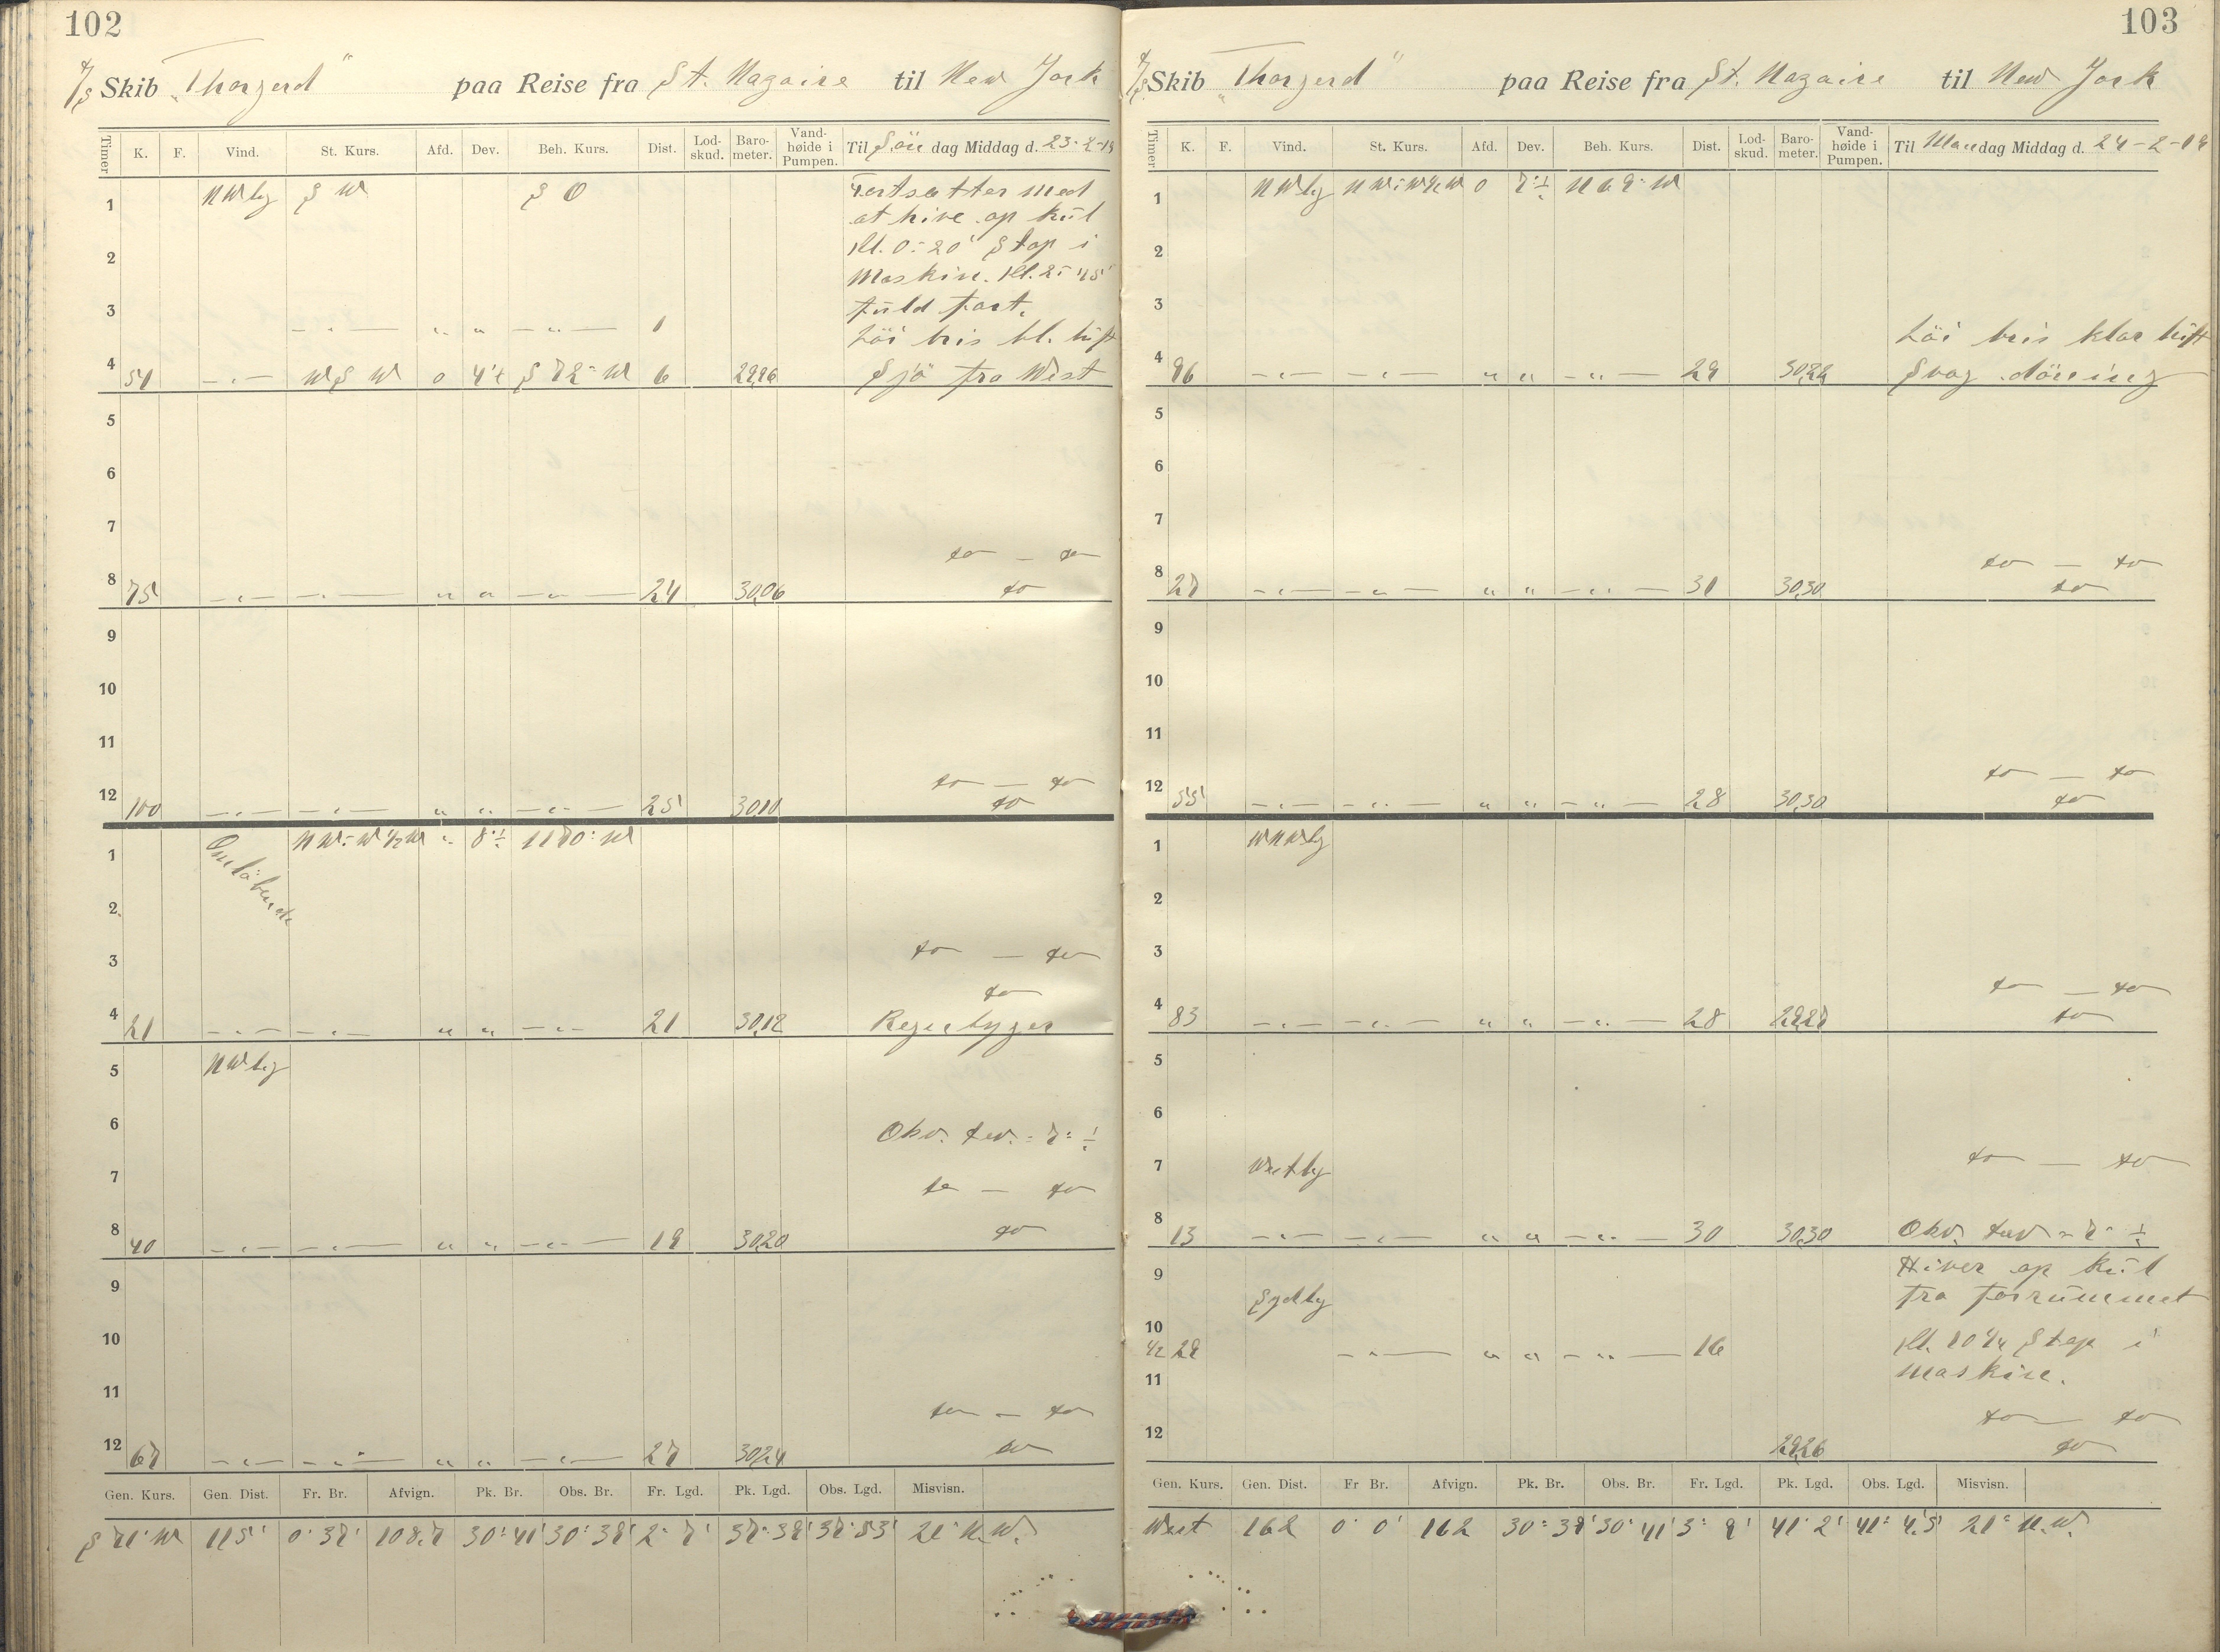 102
S/S Skib „Thorgerd" paa Reise fra St. Nazaire til New York
Timer K. F. Vind. St. Kurs. Afd. Dev. Beh. Kurs. Dist. Lod-skud. Baro-meter. Vand-høide i Pumpen. Til Søn dag Middag d. 23-2-19
1 NWlig S W S O Fortsætter med
at hive op kul
2 Kl. 0:20' Stop i
Maskin. Kl. 2:45'
3 Fuld fart.
— " — " " — " — 1 Löi bris bl. luft
4 54 — " — W S W 0 4°E S 72° W 6 29,96 Sjö fra West
5
6
7
do — do
8 75 — " — — " — " " — " — 24 30,06 do
9
10
11
do — do
12 100 — " — — " — " " — " — 25 30,10 do
1 Omlöbende NW:W½W " 8°÷ N70°W
2
3 do — do
do
4 21 — " — — " — " " — " — 21 30,12 Regnbyger
5 NWlig
6 Obs. dev. = 7° ÷
7 do — do
8 40 — " — — " — " " — " — 19 30,20 do
9
10
11
do — do
12 67 — " — — " — " " — " — 27 30,24 do
Gen. Kurs. Gen. Dist. Fr. Br. Afvign. Pk. Br. Obs. Br. Fr. Lgd. Pk. Lgd. Obs. Lgd. Misvisn.
S 71° W 115' 0° 37' 108.7 30° 41' 30° 39' 2° 7' 37° 39' 37° 53' 21° N.W.
103
S/S Skib „Thorgerd" paa Reise fra St. Nazaire til New York
Timer K. F. Vind. St. Kurs. Afd. Dev. Beh. Kurs. Dist. Lod-skud. Baro-meter. Vand-høide i Pumpen. Til Mandag Middag d. 24-2-19
1 NWlig NW:W½W 0 7°÷ N69°W
2
3
Löi bris klar luft
4 96 — " — — " — " " — " — 29 30,22 Svag dönning
5
6
7
do — do
8 27 — " — — " — " " — " — 31 30,30 do
9
10
11
do — do
12 55 — " — — " — " " — " — 28 30,30 do
1 WNWlig
2
3
do — do
4 83 — " — — " — " " — " — 28 29,27 do
5
6
7 Westlig do — do
8 13 — " — — " — " " — " — 30 30,30 Obs. dev = 7° ÷
9 Hiver op kul
Sydlig fra forrummet
10
½ 29 — " — " " — " — 16 Kl. 10½ Stop i
11 maskin.
do — do
12 29,26 do
Gen. Kurs. Gen. Dist. Fr Br. Afvign. Pk. Br. Obs. Br. Fr. Lgd. Pk. Lgd. Obs. Lgd. Misvisn.
West 162 0° 0' 162 30° 39' 30° 41' 3° 9' 41° 2' 41° 4,5' 21° N.W.